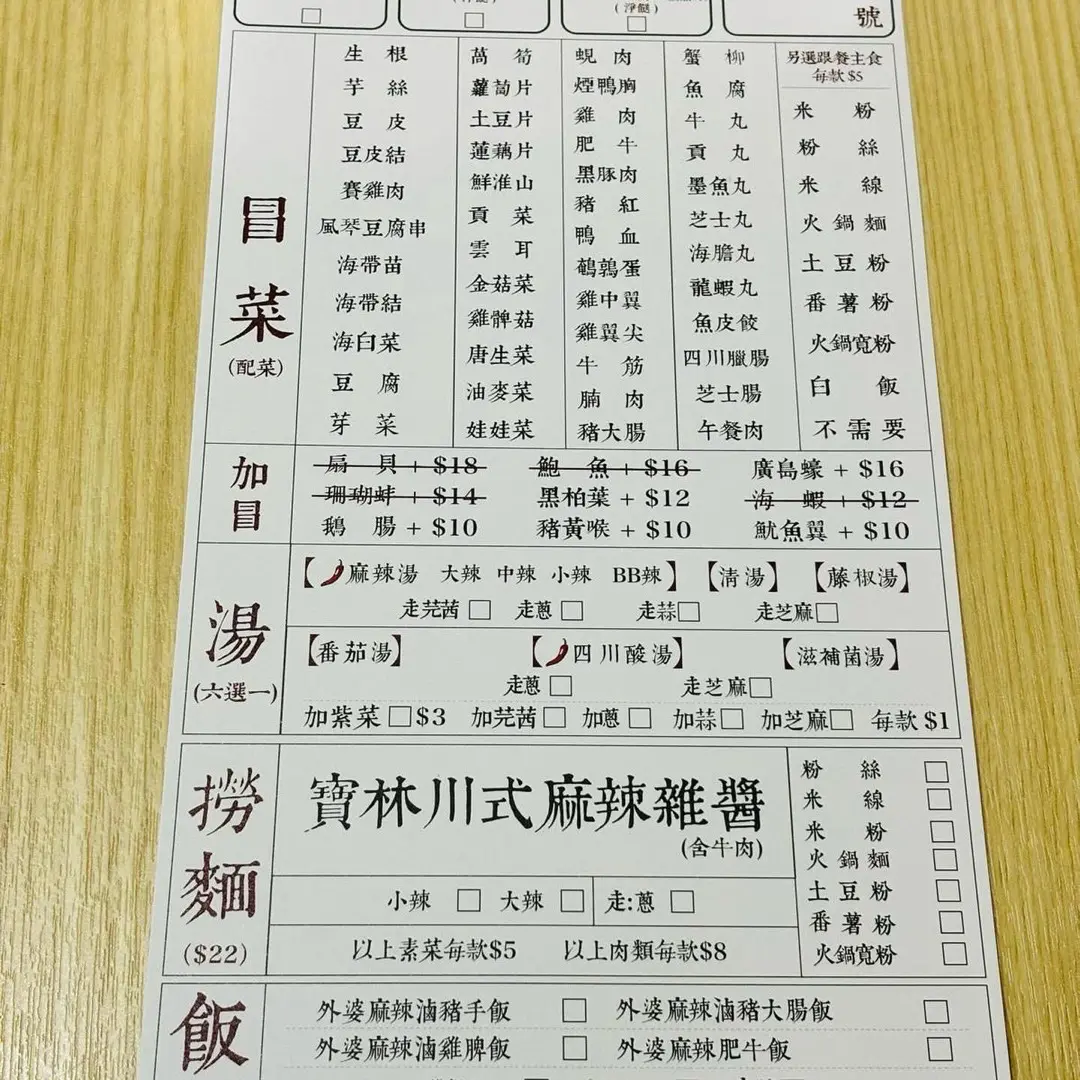 (淨餸)
號
冒菜
(配菜)
生根
芋絲
豆皮
豆皮結
賽雞肉
風琴豆腐串
海帶苗
海帶結
海白菜
豆腐
芽菜
萵筍
蘿蔔片
土豆片
蓮藕片
鮮淮山
貢菜
雲耳
金菇菜
雞髀菇
唐生菜
油麥菜
娃娃菜
蜆肉
煙鴨胸
雞肉
肥牛
黑豚肉
豬紅
鴨血
鵪鶉蛋
雞中翼
雞翼尖
牛筋
腩肉
豬大腸
蟹柳
魚腐
牛丸
貢丸
墨魚丸
芝士丸
海膽丸
龍蝦丸
魚皮餃
四川臘腸
芝士腸
午餐肉
另選跟餐主食
每款 $5
米粉
粉絲
米線
火鍋麵
土豆粉
番薯粉
火鍋寬粉
白飯
不需要
加冒
扇貝 + $18 鮑魚 + $16 廣島蠔 + $16
珊瑚蚌 + $14 黑柏葉 + $12 海蝦 + $12
鵝腸 + $10 豬黃喉 + $10 魷魚翼 + $10
湯
(六選一)
【麻辣湯 大辣 中辣 小辣 BB辣】【清湯】【藤椒湯】
走芫茜 走蔥 走蒜 走芝麻
【番茄湯】【四川酸湯】【滋補菌湯】
走蔥 走芝麻
加紫菜 $3 加芫茜 加蔥 加蒜 加芝麻 每款 $1
撈麵
($22)
寶林川式麻辣雜醬
(含牛肉)
小辣 大辣 走:蔥
以上素菜每款$5 以上肉類每款$8
粉絲
米線
米粉
火鍋麵
土豆粉
番薯粉
火鍋寬粉
飯
外婆麻辣滷豬手飯 外婆麻辣滷豬大腸飯
外婆麻辣滷雞脾飯 外婆麻辣肥牛飯